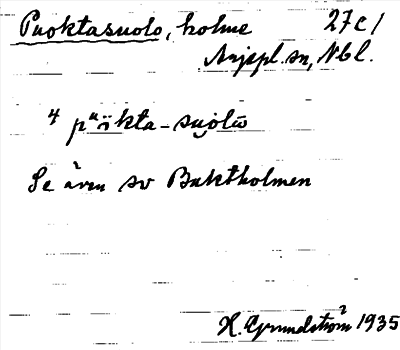 Puoktasuolo, holme 27c1
Arjepl. sn, Nbl.
4 pu̯ökta-suo̯lu
Se även sv Buktholmen
H. Grundström 1935